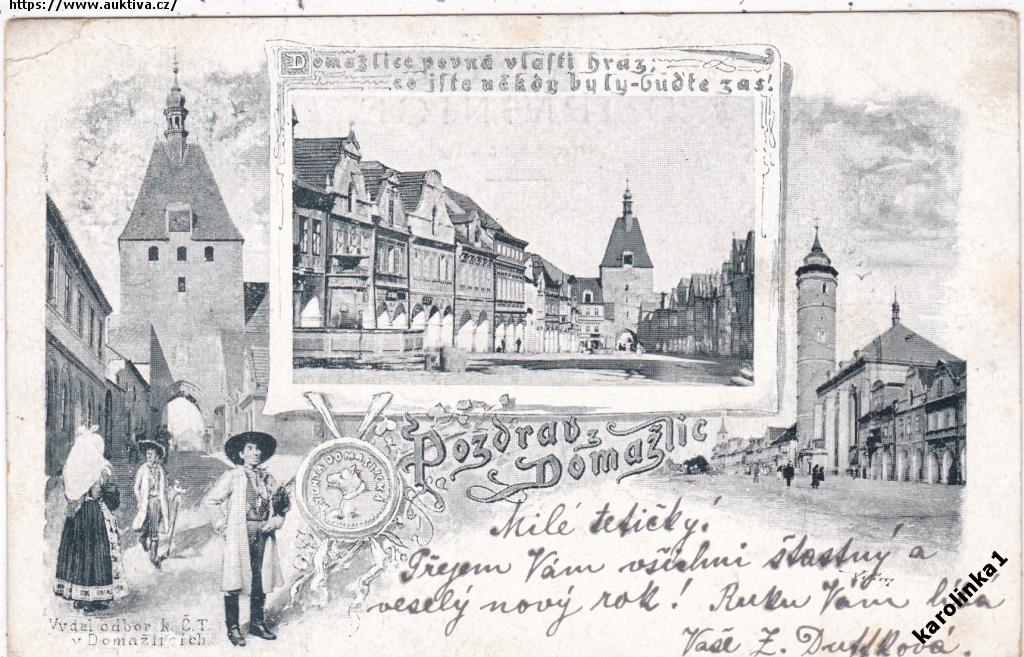 https://www.auktiva.cz/
Domažlice pevná vlasti hraz,
co jste někdy byly-buďte zas!
Pozdrav z
Domažlic
Milé tetičky!
Přejem Vám všichni šťastný a
veselý nový rok! Ruku Vám líbá
Vaše Z.
Vydal odbor k. Č. T.
v Domažlicích.
karolinka1